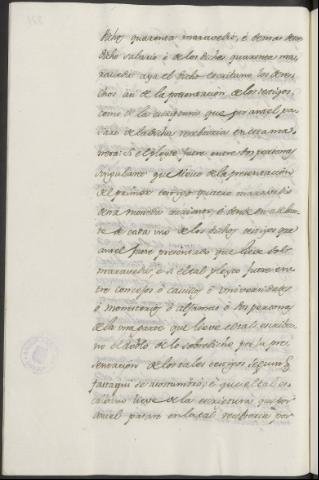 dichos quarenta maravedis, è demas deste
dicho salario è de los dichos quarenta ma-
ravedis aya el dicho escribano los dere-
chos asi de la presentacion de los testigos,
como de la escriptura que por ante el pa-
sare de la dicha receptoria en esta ma-
nera: Si el pleyto fuere entre dos personas
singulares que lleve de la presentacion
del primer testigo quatro maravedis
desta moneda corriente, è dende en adelan-
te de cada uno de los dichos testigos que
ante el fuere presentado que lleve dos
maravedis, è si el tal pleyto fuere en-
tre concejos ò cavildos ò universidades
ò monesterios, ò aljamas ò dos personas
de la una parte que lleve el tal escriba-
no el doblo de lo sobredicho por la pre-
sentacion de los tales testigos segun q.
fasta qui se acostumbró; è que el tal es-
cribano lleve de la escriptura que por
ante el pasare en la tal receptoria por